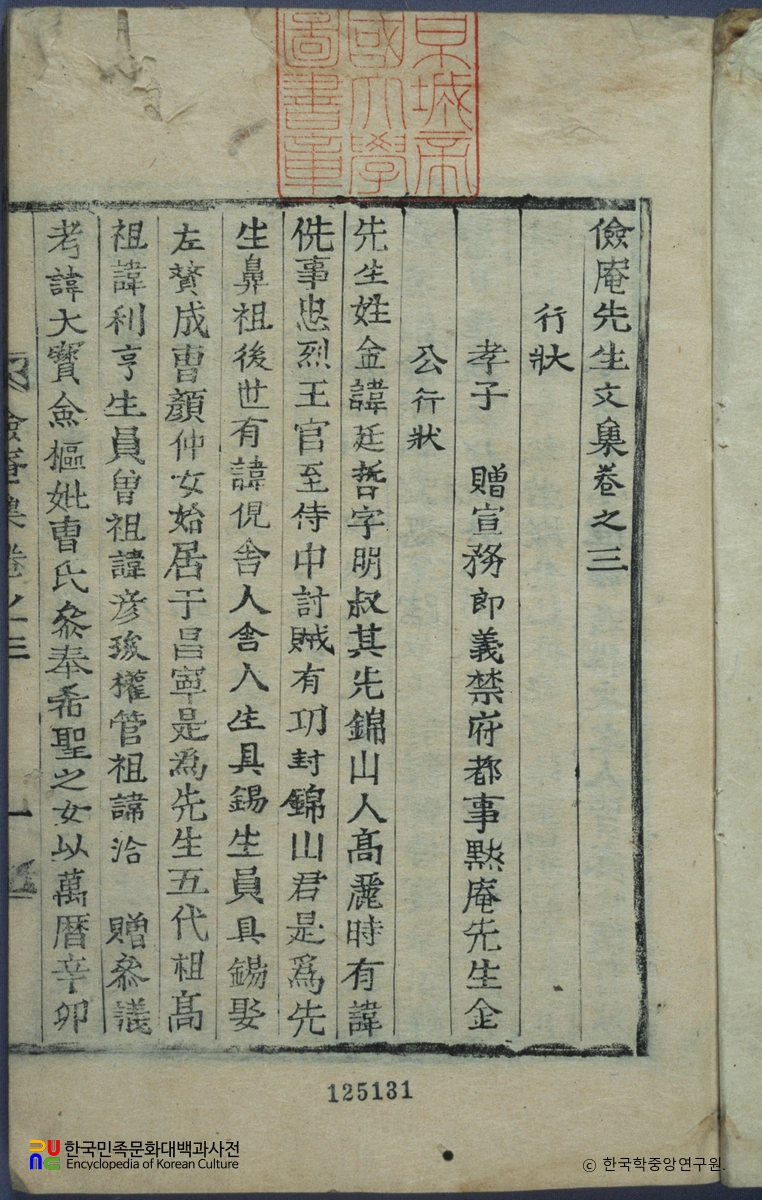 京城帝
國大學
圖書章
儉庵先生文集卷之三
行狀
孝子 贈宣務郎義禁府都事默庵先生金
公行狀
先生姓金諱廷哲字明叔其先錦山人高麗時有諱
侁事忠烈王官至侍中討賊有功封錦山君是爲先
生鼻祖後世有諱俔舍人舍人生具錫生員具錫娶
左贊成曺顔仲女始居于昌寧是爲先生五代祖高
祖諱利亨生員曾祖諱彦琁權管祖諱洽 贈參議
考諱大寶僉樞妣曺氏參奉希聖之女以萬曆辛卯
儉庵集卷之三
一
125131
한국민족문화대백과사전
Encyclopedia of Korean Culture
© 한국학중앙연구원.